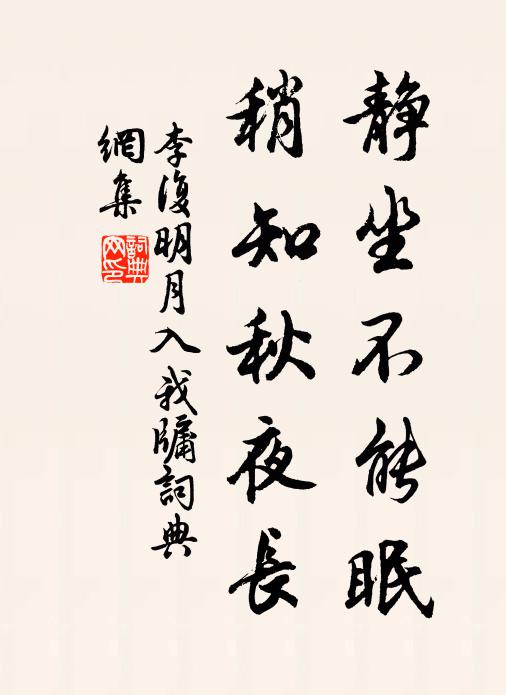 靜坐不能眠
稍知秋夜長
李復明月入我牖詞典
網集
詞典
网印